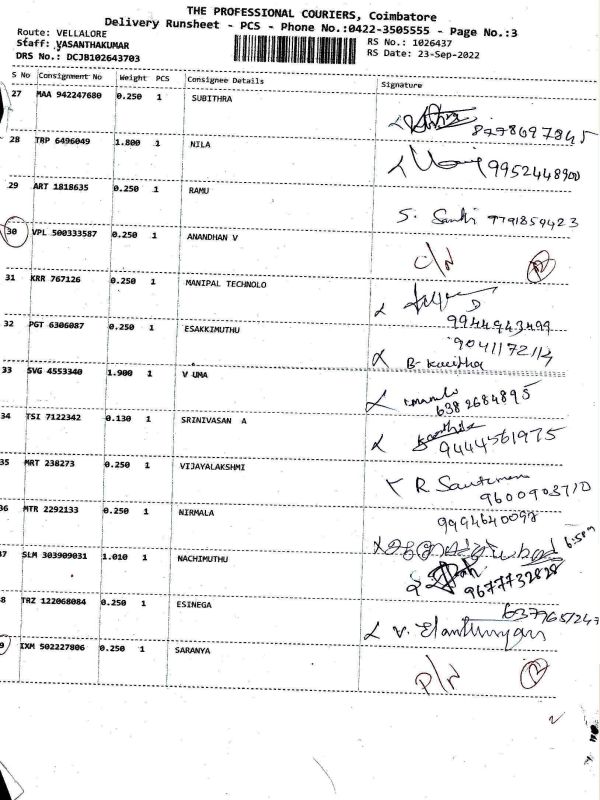 THE PROFESSIONAL COURIERS, Coimbatore
Delivery Runsheet - PCS - Phone No.:0422-3505555 - Page No.:3
Route: VELLALORE
Staff: VASANTHAKUMAR
DRS No.: DCJB102643703
RS No.: 1026437
RS Date: 23-Sep-2022
S No Consignment No Weight PCS Consignee Details Signature
27 MAA 942247680 0.250 1 SUBITHRA
8778697845
28 TRP 6496049 1.800 1 NILA
9952448900
29 ART 1818635 0.250 1 RAMU
S. Santhi 9791859423
30 VPL 500333587 0.250 1 ANANDHAN V
C/N
31 KRR 767126 0.250 1 MANIPAL TECHNOLO
9944943499
32 PGT 6306087 0.250 1 ESAKKIMUTHU
9041172114
B- Kavitha
33 SVG 4553340 1.900 1 V UMA
6382684895
34 TSI 7122342 0.130 1 SRINIVASAN A
9444561975
35 MRT 238273 0.250 1 VIJAYALAKSHMI
R
9600903710
36 MTR 2292133 0.250 1 NIRMALA
9994640098
37 SLM 303909031 1.010 1 NACHIMUTHU
9677732828
8 TRZ 122068084 0.250 1 ESINEGA
6377651247
V.
9 IXM 502227806 0.250 1 SARANYA
P/N